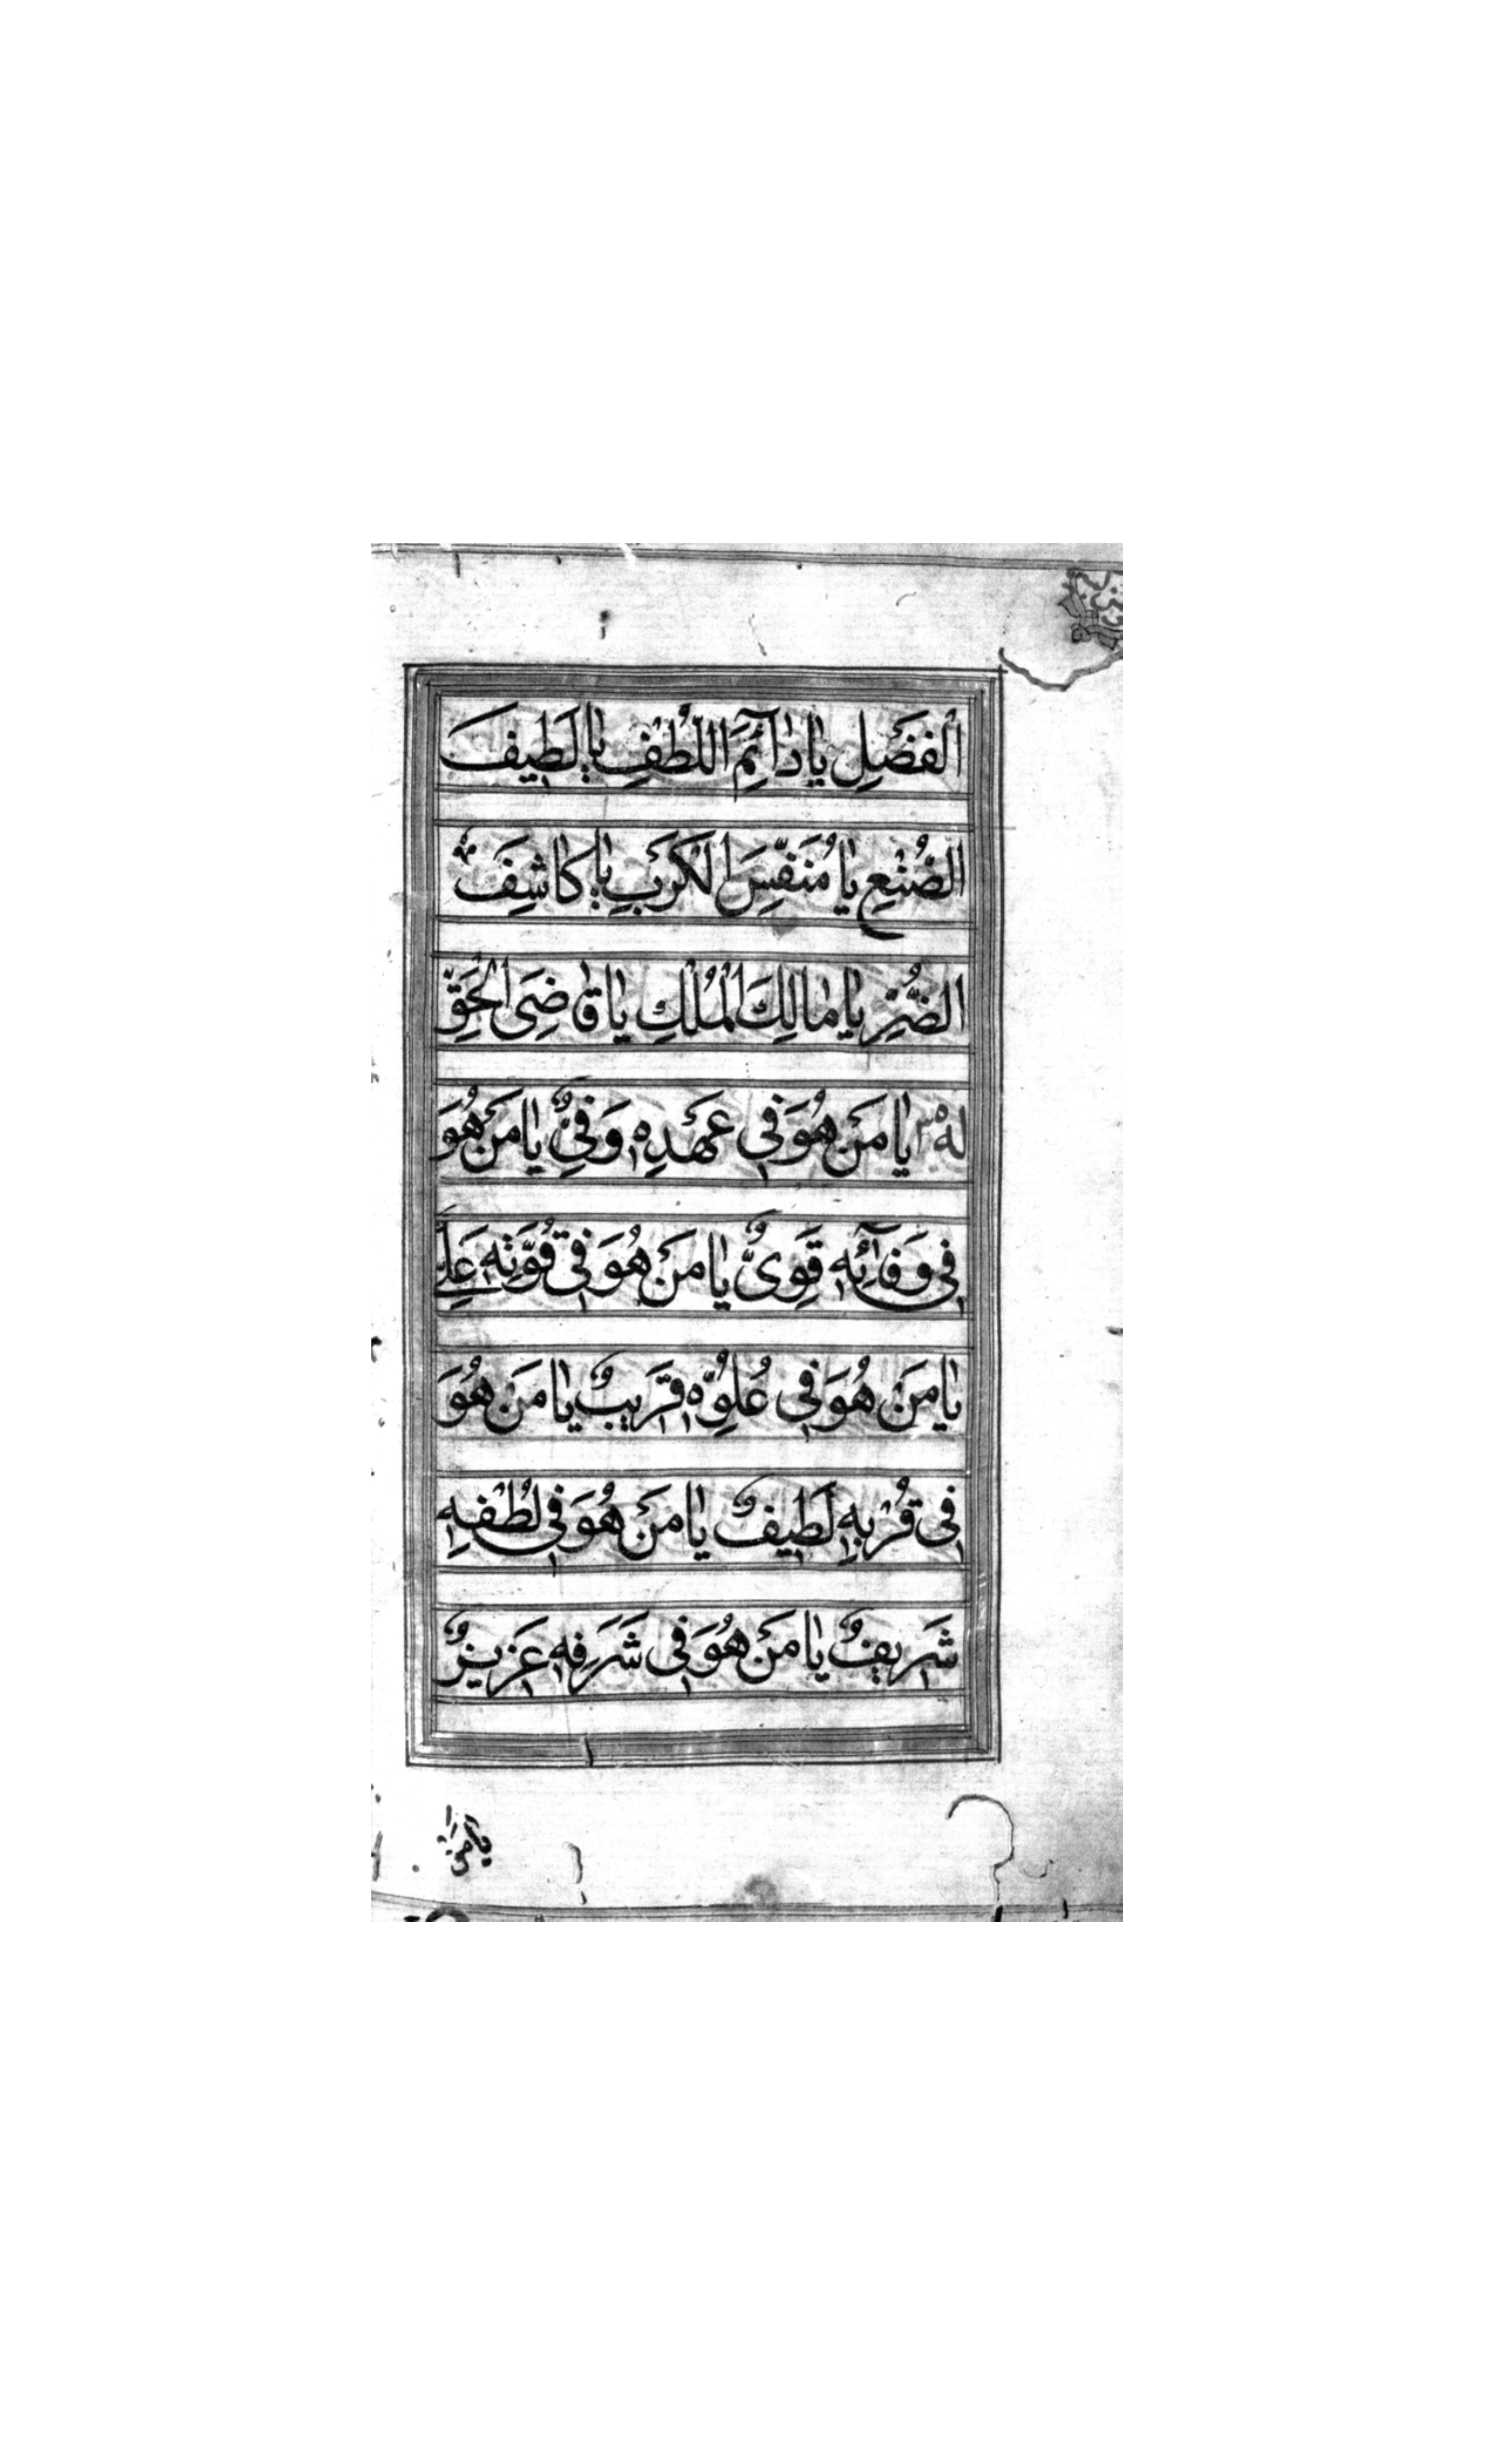 الْفَضْلِ يَا دَآئِمَ اللُّطْفِ يَا لَطِيفَ
الصُّنْعِ يَا مُنَفِّسَ الْكَرْبِ يَا كَاشِفَ
الضُّرِّ يَا مَالِكَ الْمُلْكِ يَا قَاضِىَ الْحَقِّ
لَهُ يَا مَنْ هُوَ فِي عَهْدِهِ وَفِيٌّ يَا مَنْ هُوَ
فِي وَفَآئِهِ قَوِىٌّ يَا مَنْ هُوَ فِي قُوَّتِهِ عَلِيٌّ
يَا مَنْ هُوَ فِي عُلُوِّهِ قَرِيبٌ يَا مَنْ هُوَ
فِي قُرْبِهِ لَطِيفٌ يَا مَنْ هُوَ فِي لُطْفِهِ
شَرِيفٌ يَا مَنْ هُوَ فِي شَرَفِهِ عَزِيزٌ
يا من